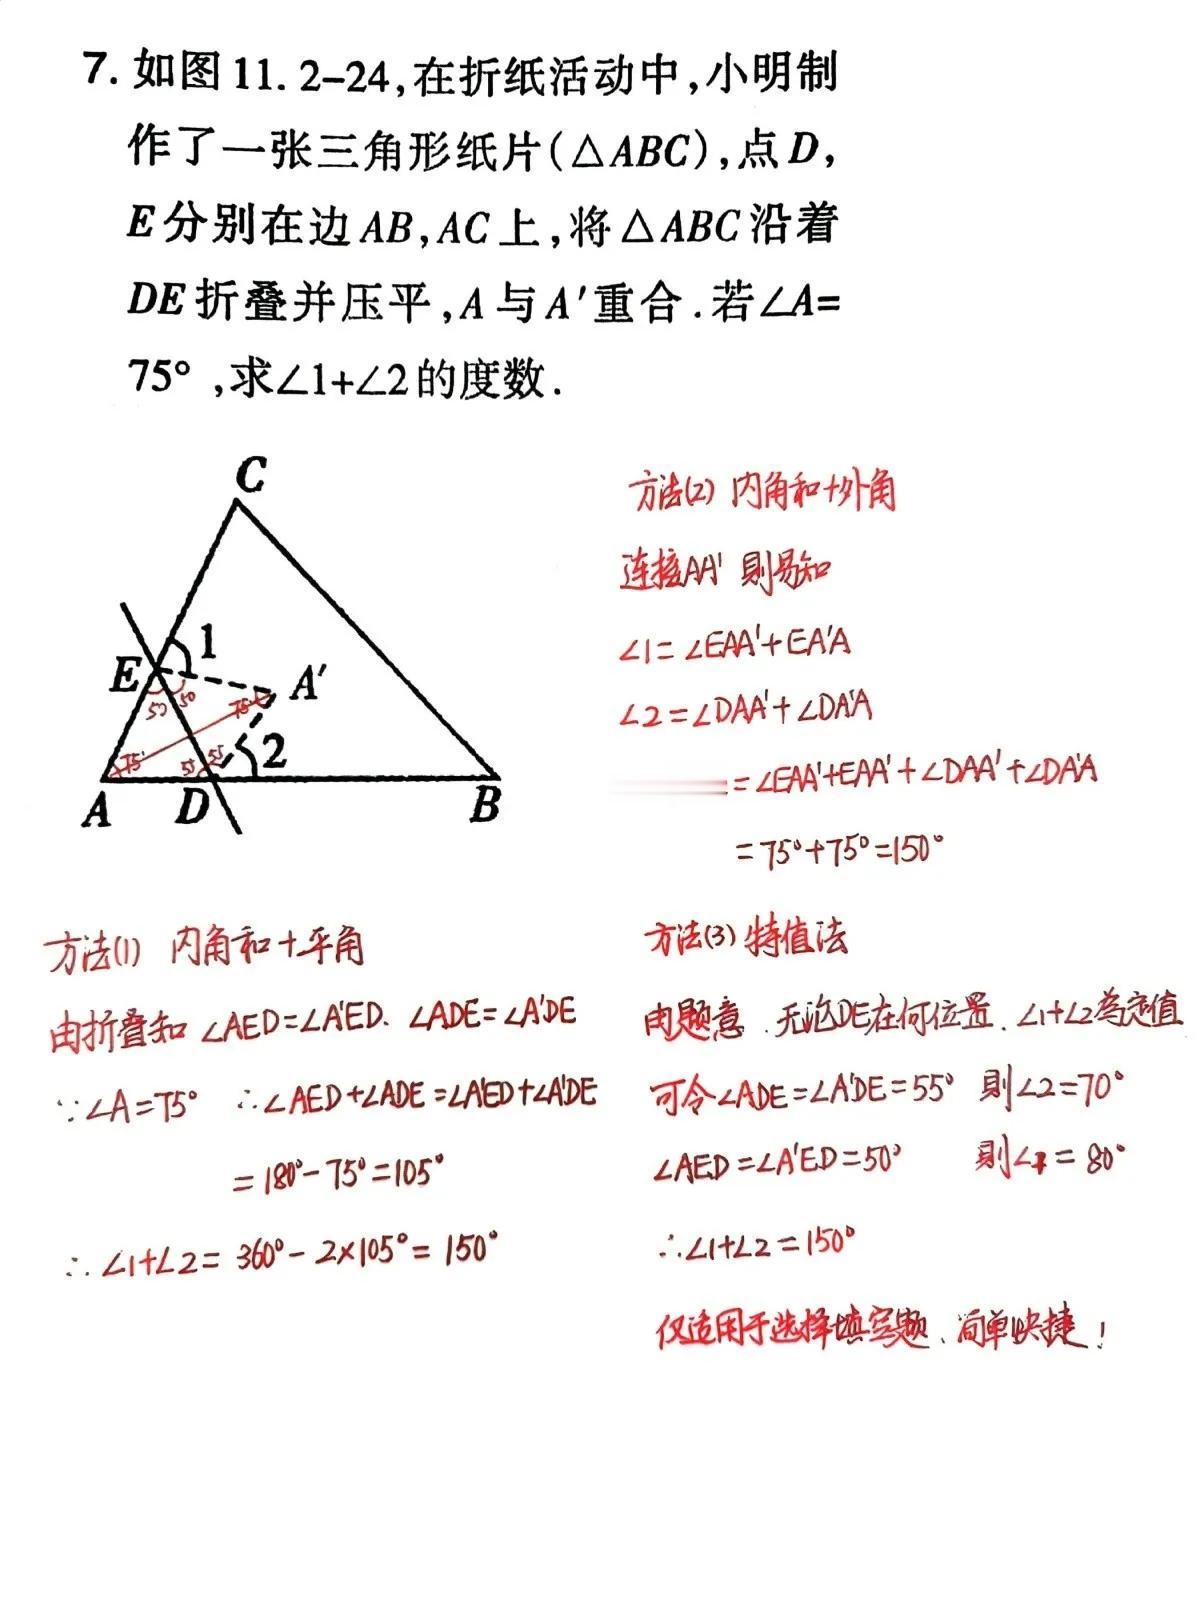 7. 如图11.2-24,在折纸活动中,小明制
作了一张三角形纸片(△ABC),点D,
E分别在边AB,AC上,将△ABC沿着
DE折叠并压平,A与A′重合.若∠A=
75°,求∠1+∠2的度数.
C
E
1
A′
50
50
75°
75°
55
55
2
A
D
B
方法(2) 内角和+外角
连接AA' 则易知
∠1=∠EAA'+EA'A
∠2=∠DAA'+∠DA'A
=∠EAA'+EAA'+∠DAA'+∠DA'A
=75°+75°=150°
方法(1) 内角和+平角
由折叠知 ∠AED=∠A'ED、∠ADE=∠A'DE
∵∠A=75° ∴∠AED+∠ADE=∠A'ED+∠A'DE
=180°-75°=105°
∴∠1+∠2=360°-2×105°=150°
方法(3) 特值法
由题意、无论DE在何位置、∠1+∠2为定值
可令∠ADE=∠A'DE=55° 则∠2=70°
∠AED=∠A'ED=50° 则∠1=80°
∴∠1+∠2=150°
仅适用于选择填空题、简单快捷!